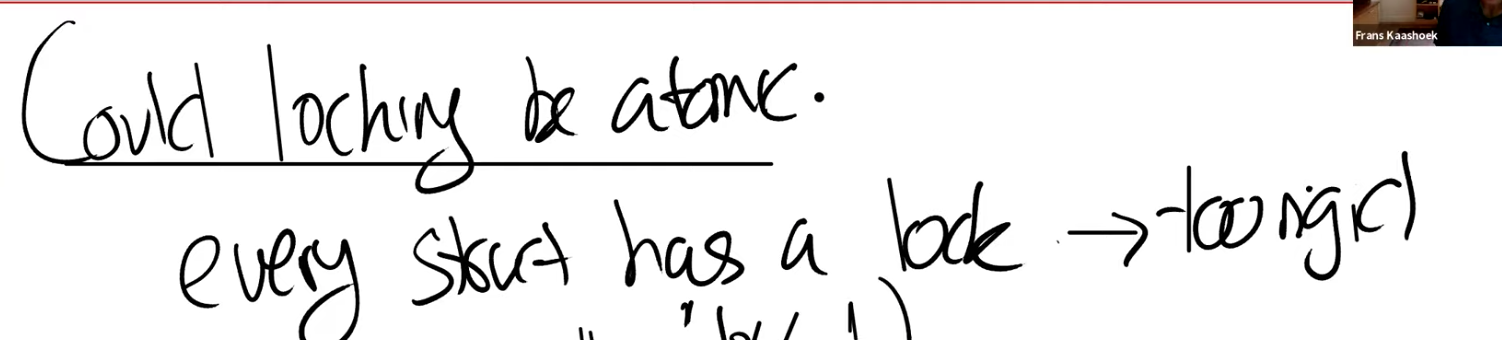 Frans Kaashoek
Could locking be atomic.
every struct has a lock → too rigid